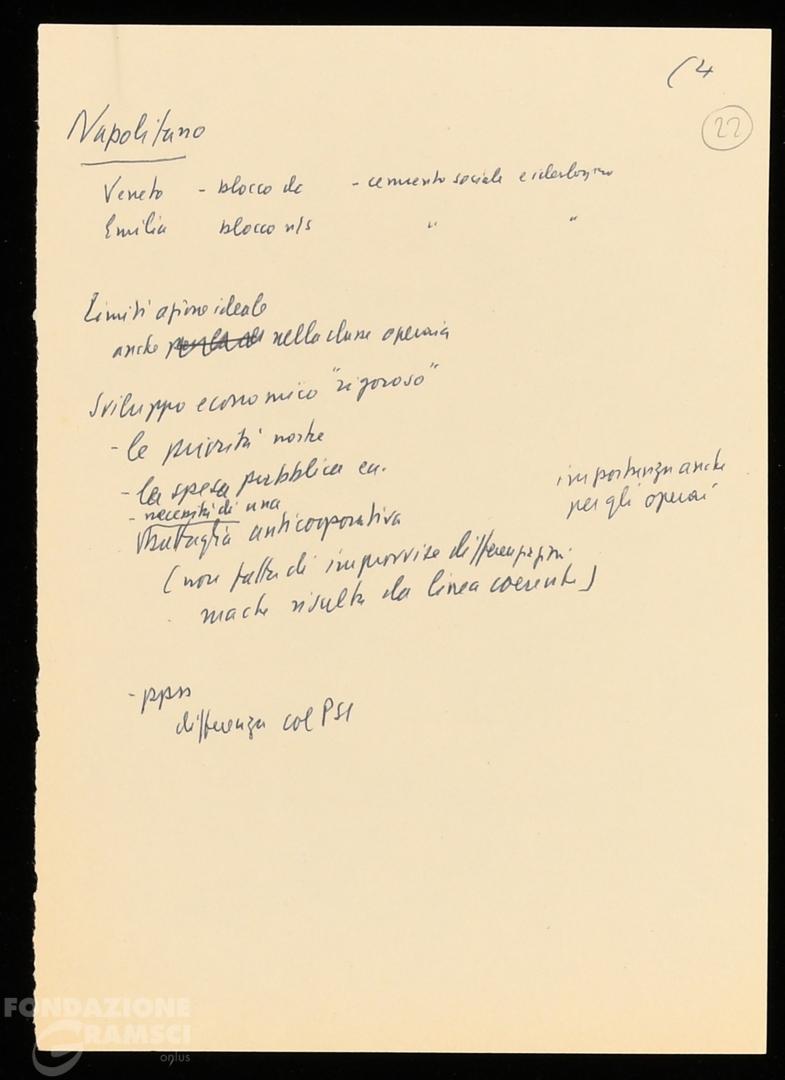 (4
22
Napolitano
Veneto - blocco dc - cemento sociale e ideologico
Emilia blocco n/s " "
Limiti azione ideale
anche nella classe operaia
Sviluppo economico "rigoroso"
- le priorità nostre
- la spesa pubblica ecc. importanza anche
- necessità di una per gli operai
battaglia anticorporativa
(non fatta di improvvise differenziazioni
ma che risulta da linea coerente)
- ppss
differenza col PSI
FONDAZIONE
GRAMSCI
onlus